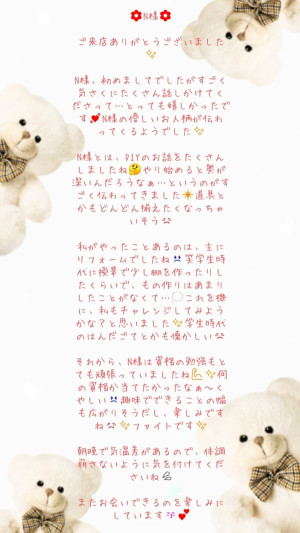 N様
ご来店ありがとうございました
✨
N様、初めましてでしたがすごく
気さくにたくさん話しかけてく
ださって…とっても嬉しかったで
す💕N様の優しいお人柄が伝わ
ってくるようでした✨
N様とは、DIYのお話をたくさん
しましたね🤔やり始めると奥が
深いんだろうなぁ…というのがす
ごく伝わってきました✴道具と
かもどんどん揃えたくなっちゃ
いそう
私がやったことあるのは、主に
リフォームでしたね 笑学生時
代に授業で少し棚を作ったりし
たくらいで、もの作りはあまり
したことがなくて…💭これを機
に、私もチャレンジしてみよう
かな?と思いました✨学生時代
のはんだごてとかも懐かしい
それから、N様は資格の勉強もと
ても頑張っていましたね💪✨何
の資格か当てたかったなぁ〜く
やしい 趣味でできることの幅
も広がりそうだし、楽しみです
ね ✨ファイトです✨
朝晩で気温差があるので、体調
崩さないように気を付けてくだ
さいね💪
またお会いできるのを楽しみに
しています 💕